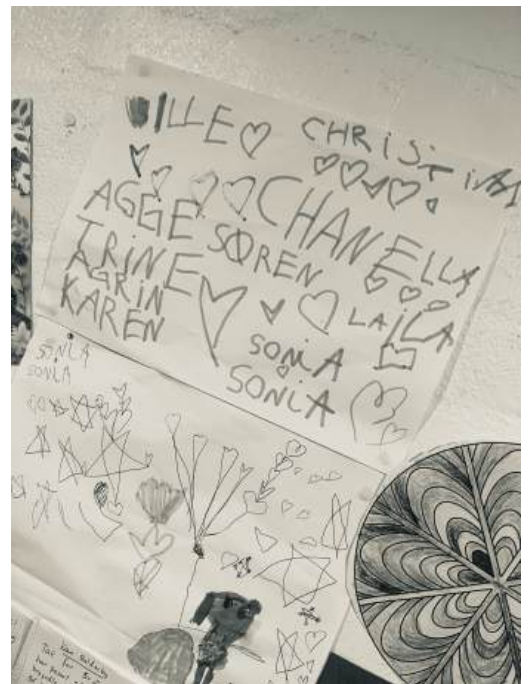 VILLE
CHRISTINA
CHANELLA
AGGE SØREN
TRINE
LAILA
AGRIN
KAREN
SONIA
SONIA
SONIA
SONIA